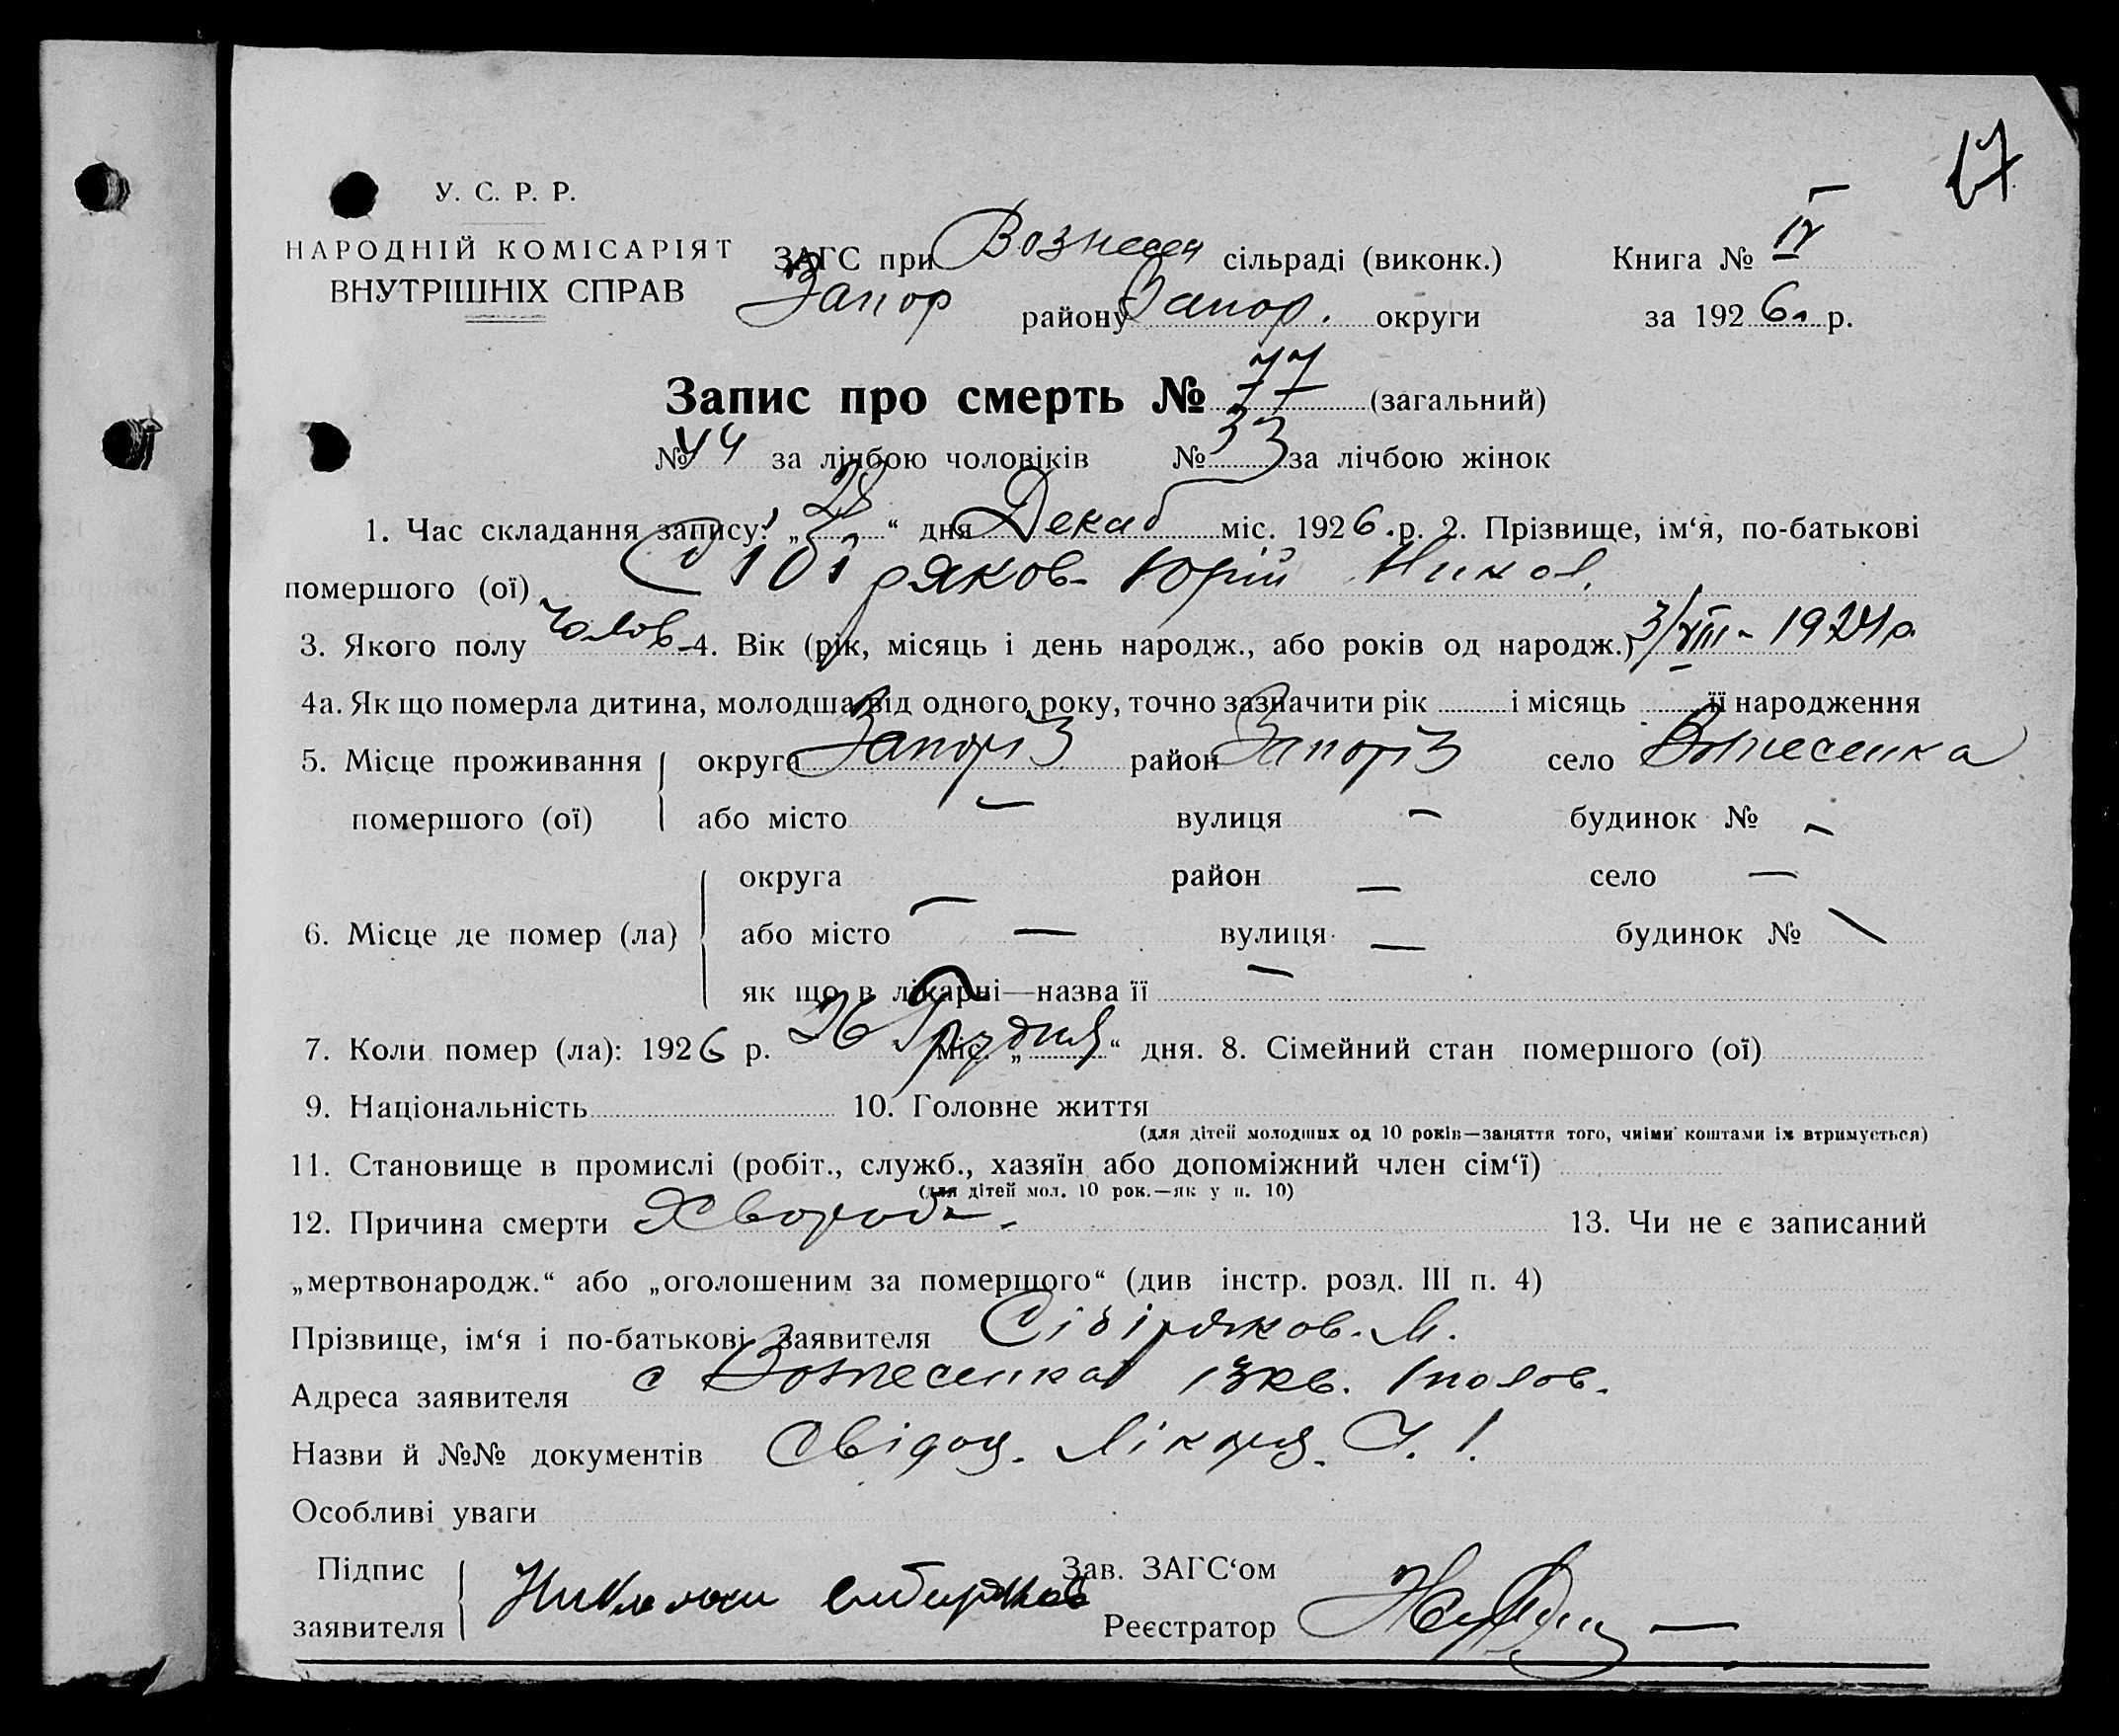 17
У. С. Р. Р.
НАРОДНІЙ КОМІСАРІЯТ
ВНУТРІШНІХ СПРАВ
ЗАГС при Вознесен сільраді (виконк.)
Запор району Запор. округи
Книга № IV
за 1926 р.
Запис про смерть № 77 (загальний)
№ 44 за лічбою чоловіків № 33 за лічбою жінок
1. Час складання запису: „28“ дня Декаб міс. 1926 р. 2. Прізвище, ім‘я, по-батькові
помершого (ої) Сібіряков Юрій Никол.
3. Якого полу Чолов. 4. Вік (рік, місяць і день народж., або років од народж.) 3/VIII - 1924 р.
4а. Як що померла дитина, молодша від одного року, точно зазначити рік і місяць її народження
5. Місце проживання округа Запоріз район Запоріз село Вознесенка
помершого (ої) або місто — вулиця — будинок № —
округа — район — село —
6. Місце де помер (ла) або місто — вулиця — будинок № —
як що в лікарні—назва її —
7. Коли помер (ла): 1926 р. 26 Грудня міс. „ “ дня. 8. Сімейний стан помершого (ої)
9. Національність 10. Головне життя
(для дітей молодших од 10 років—заняття того, чиїми коштами їх втримується)
11. Становище в промислі (робіт., служб., хазяїн або допоміжний член сім‘ї)
(для дітей мол. 10 рок.—як у п. 10)
12. Причина смерти Хвороба. 13. Чи не є записаний
„мертвонародж.“ або „оголошеним за помершого“ (див інстр. розд. III п. 4)
Прізвище, ім‘я і по-батькові заявителя Сібіряков. М.
Адреса заявителя с Вознесенка 13кв.
Назви й №№ документів Свідоц. Лікаря.
Особливі уваги
Підпис
заявителя Николаи Сибиряков
Зав. ЗАГС‘ом
Реєстратор